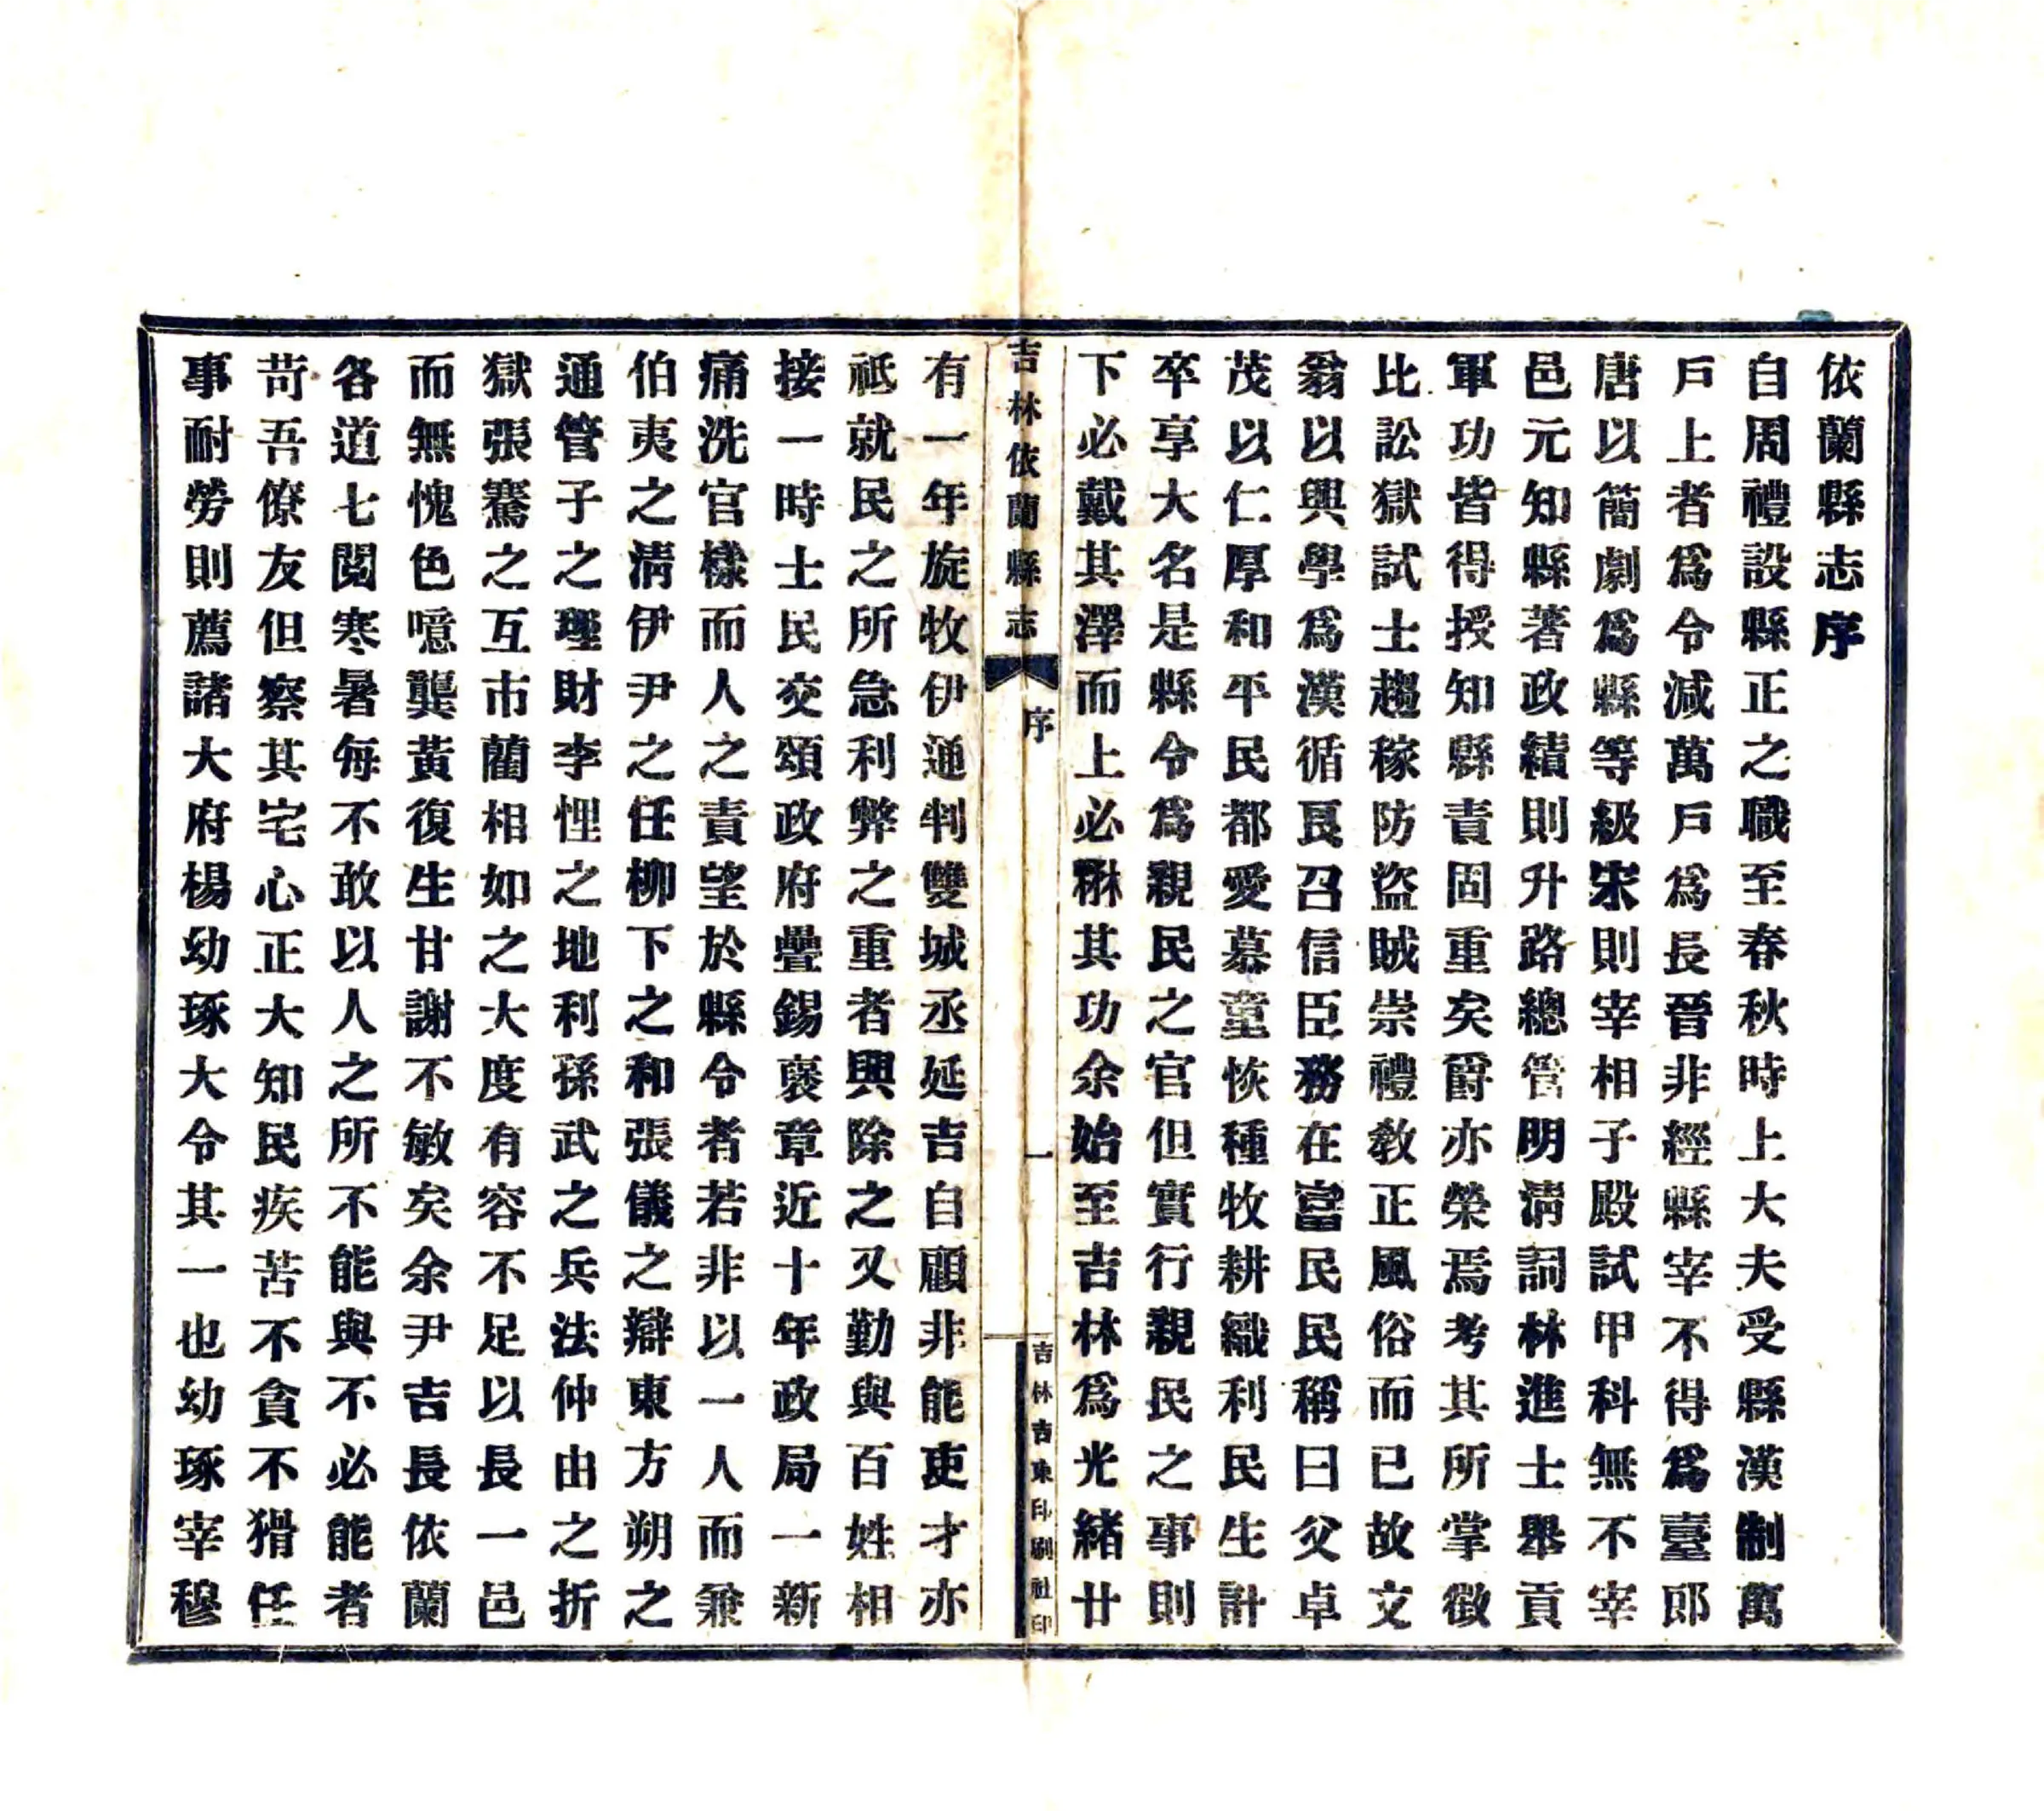 依蘭縣志序
自周禮設縣正之職至春秋時上大夫受縣漢制萬
戶上者爲令減萬戶爲長晉非經縣宰不得爲臺郎
唐以簡劇爲縣等級宋則宰相子殿試甲科無不宰
邑元知縣著政績則升路總管明淸詞林進士舉貢
軍功皆得授知縣責固重矣爵亦榮焉考其所掌徵
比訟獄試士趨稼防盜賊崇禮敎正風俗而已故文
翁以興學爲漢循良召信臣務在富民民稱曰父卓
茂以仁厚和平民都愛慕童恢種牧耕織利民生計
卒享大名是縣令爲親民之官但實行親民之事則
下必戴其澤而上必楙其功余始至吉林爲光緒廿
吉林依蘭縣志 序 一 吉林吉東印刷社印
有一年旋牧伊通判雙城丞延吉自顧非能吏才亦
祇就民之所急利弊之重者興除之又勤與百姓相
接一時士民交頌政府疊錫褒章近十年政局一新
痛洗官樣而人之責望於縣令者若非以一人而兼
伯夷之淸伊尹之任柳下之和張儀之辯東方朔之
通管子之理財李悝之地利孫武之兵法仲由之折
獄張騫之互市藺相如之大度有容不足以長一邑
而無愧色噫龔黃復生甘謝不敏矣余尹吉長依蘭
各道七閱寒暑每不敢以人之所不能與不必能者
苛吾僚友但察其宅心正大知民疾苦不貪不猾任
事耐勞則薦諸大府楊幼琢大令其一也幼琢宰穆